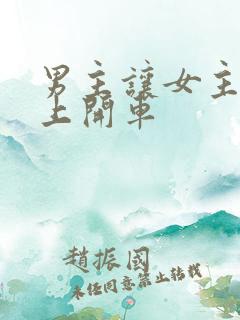 男主讓女主
上開車
趙振國
未任同意禁止轉載